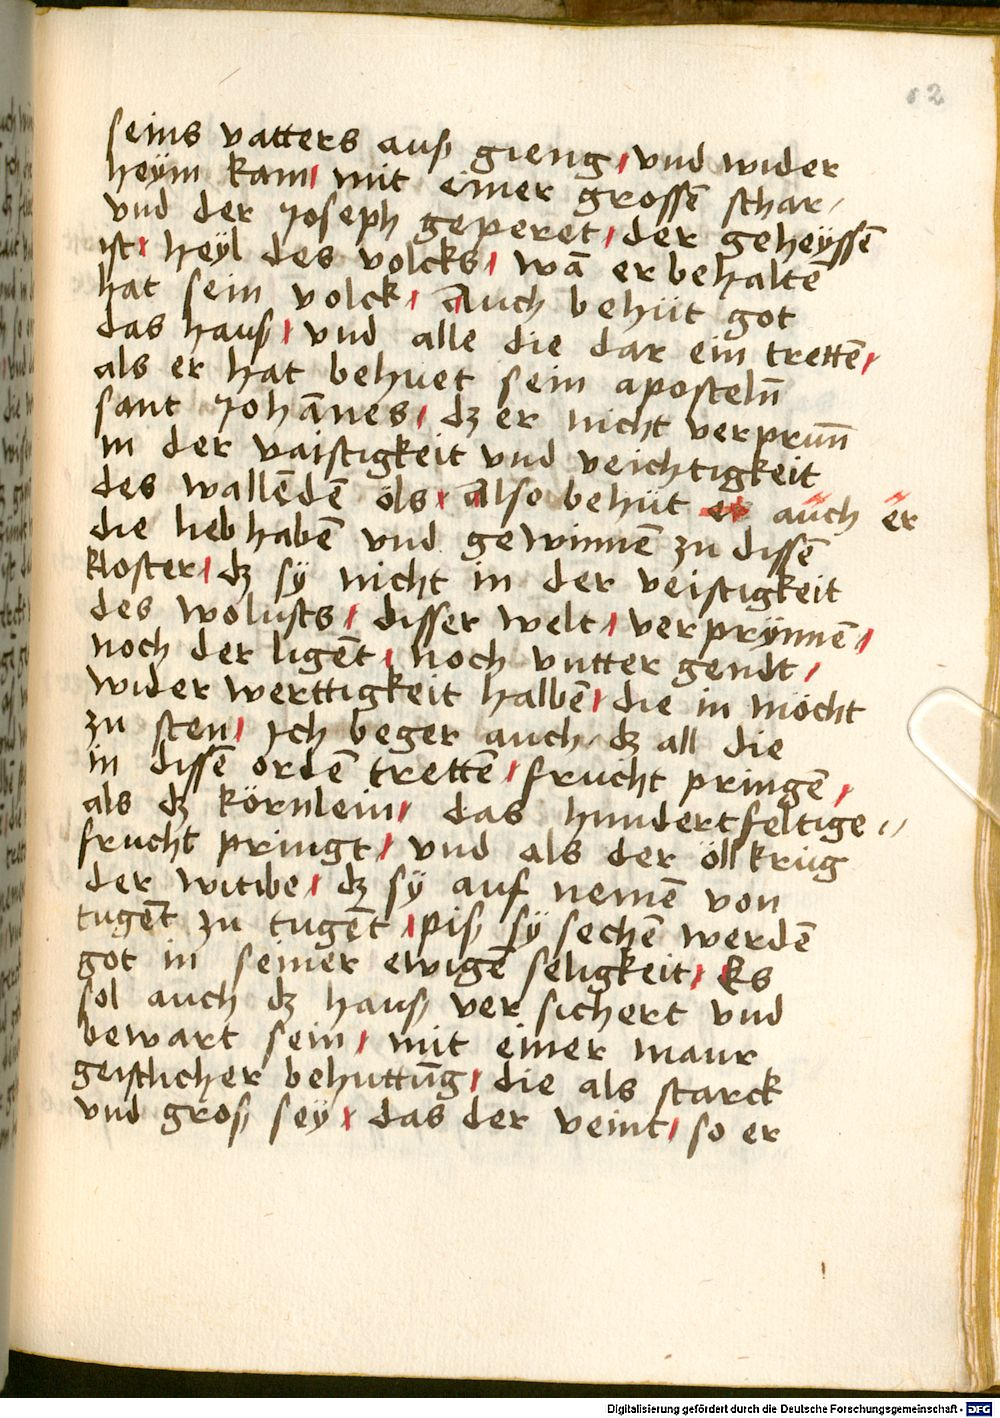 62
seins vatters auß gieng / vnd wider
heÿm kam / mit einer grossē schar /
vnd der Joseph geperet / der geheÿssē
ist / heÿl des volcks / wā er behaltē
hat sein volck / Auch behüt got
das hauß / vnd alle die dar ein trettē /
als er hat behuet sein aposteln̄
sant Johānes / dʒ er nicht verprun̄
in der vaistigkeit vnd veichtigkeit
des wallēdē öls / Also behüt auch er
die lieb habē vnd gewinnē zu dissē
kloster / dʒ sÿ nicht in der veistigkeit
des wolusts / disser welt / verprÿnnē /
noch der ligēt / noch vntter gendt /
wider werttigkeit halbē / die in möcht
zu sten / Jch beger auch / dʒ all die
in dissē ordē trettē / frucht pringē /
als dʒ körnlein / das hundertfeltige //
frucht pringt / vnd als der öll krug
der witibe / dʒ sÿ auf nemē von
tugēt zu tugēt / piß sÿ sechē werdē
got in seiner ewigē seligkeit / Es
sol auch dʒ hauß ver sichert vnd
bewart sein / mit einer maur
geistlicher behuttūg / die als starck
vnd groß seÿ / das der veint / so er
Digitalisierung gefördert durch die Deutsche Forschungsgemeinschaft - DFG